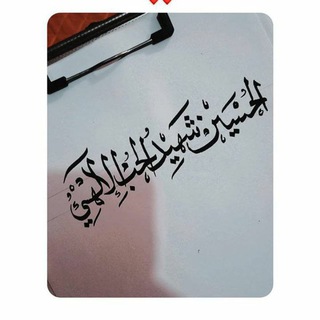 الحسين شهيد الحب الإلهي